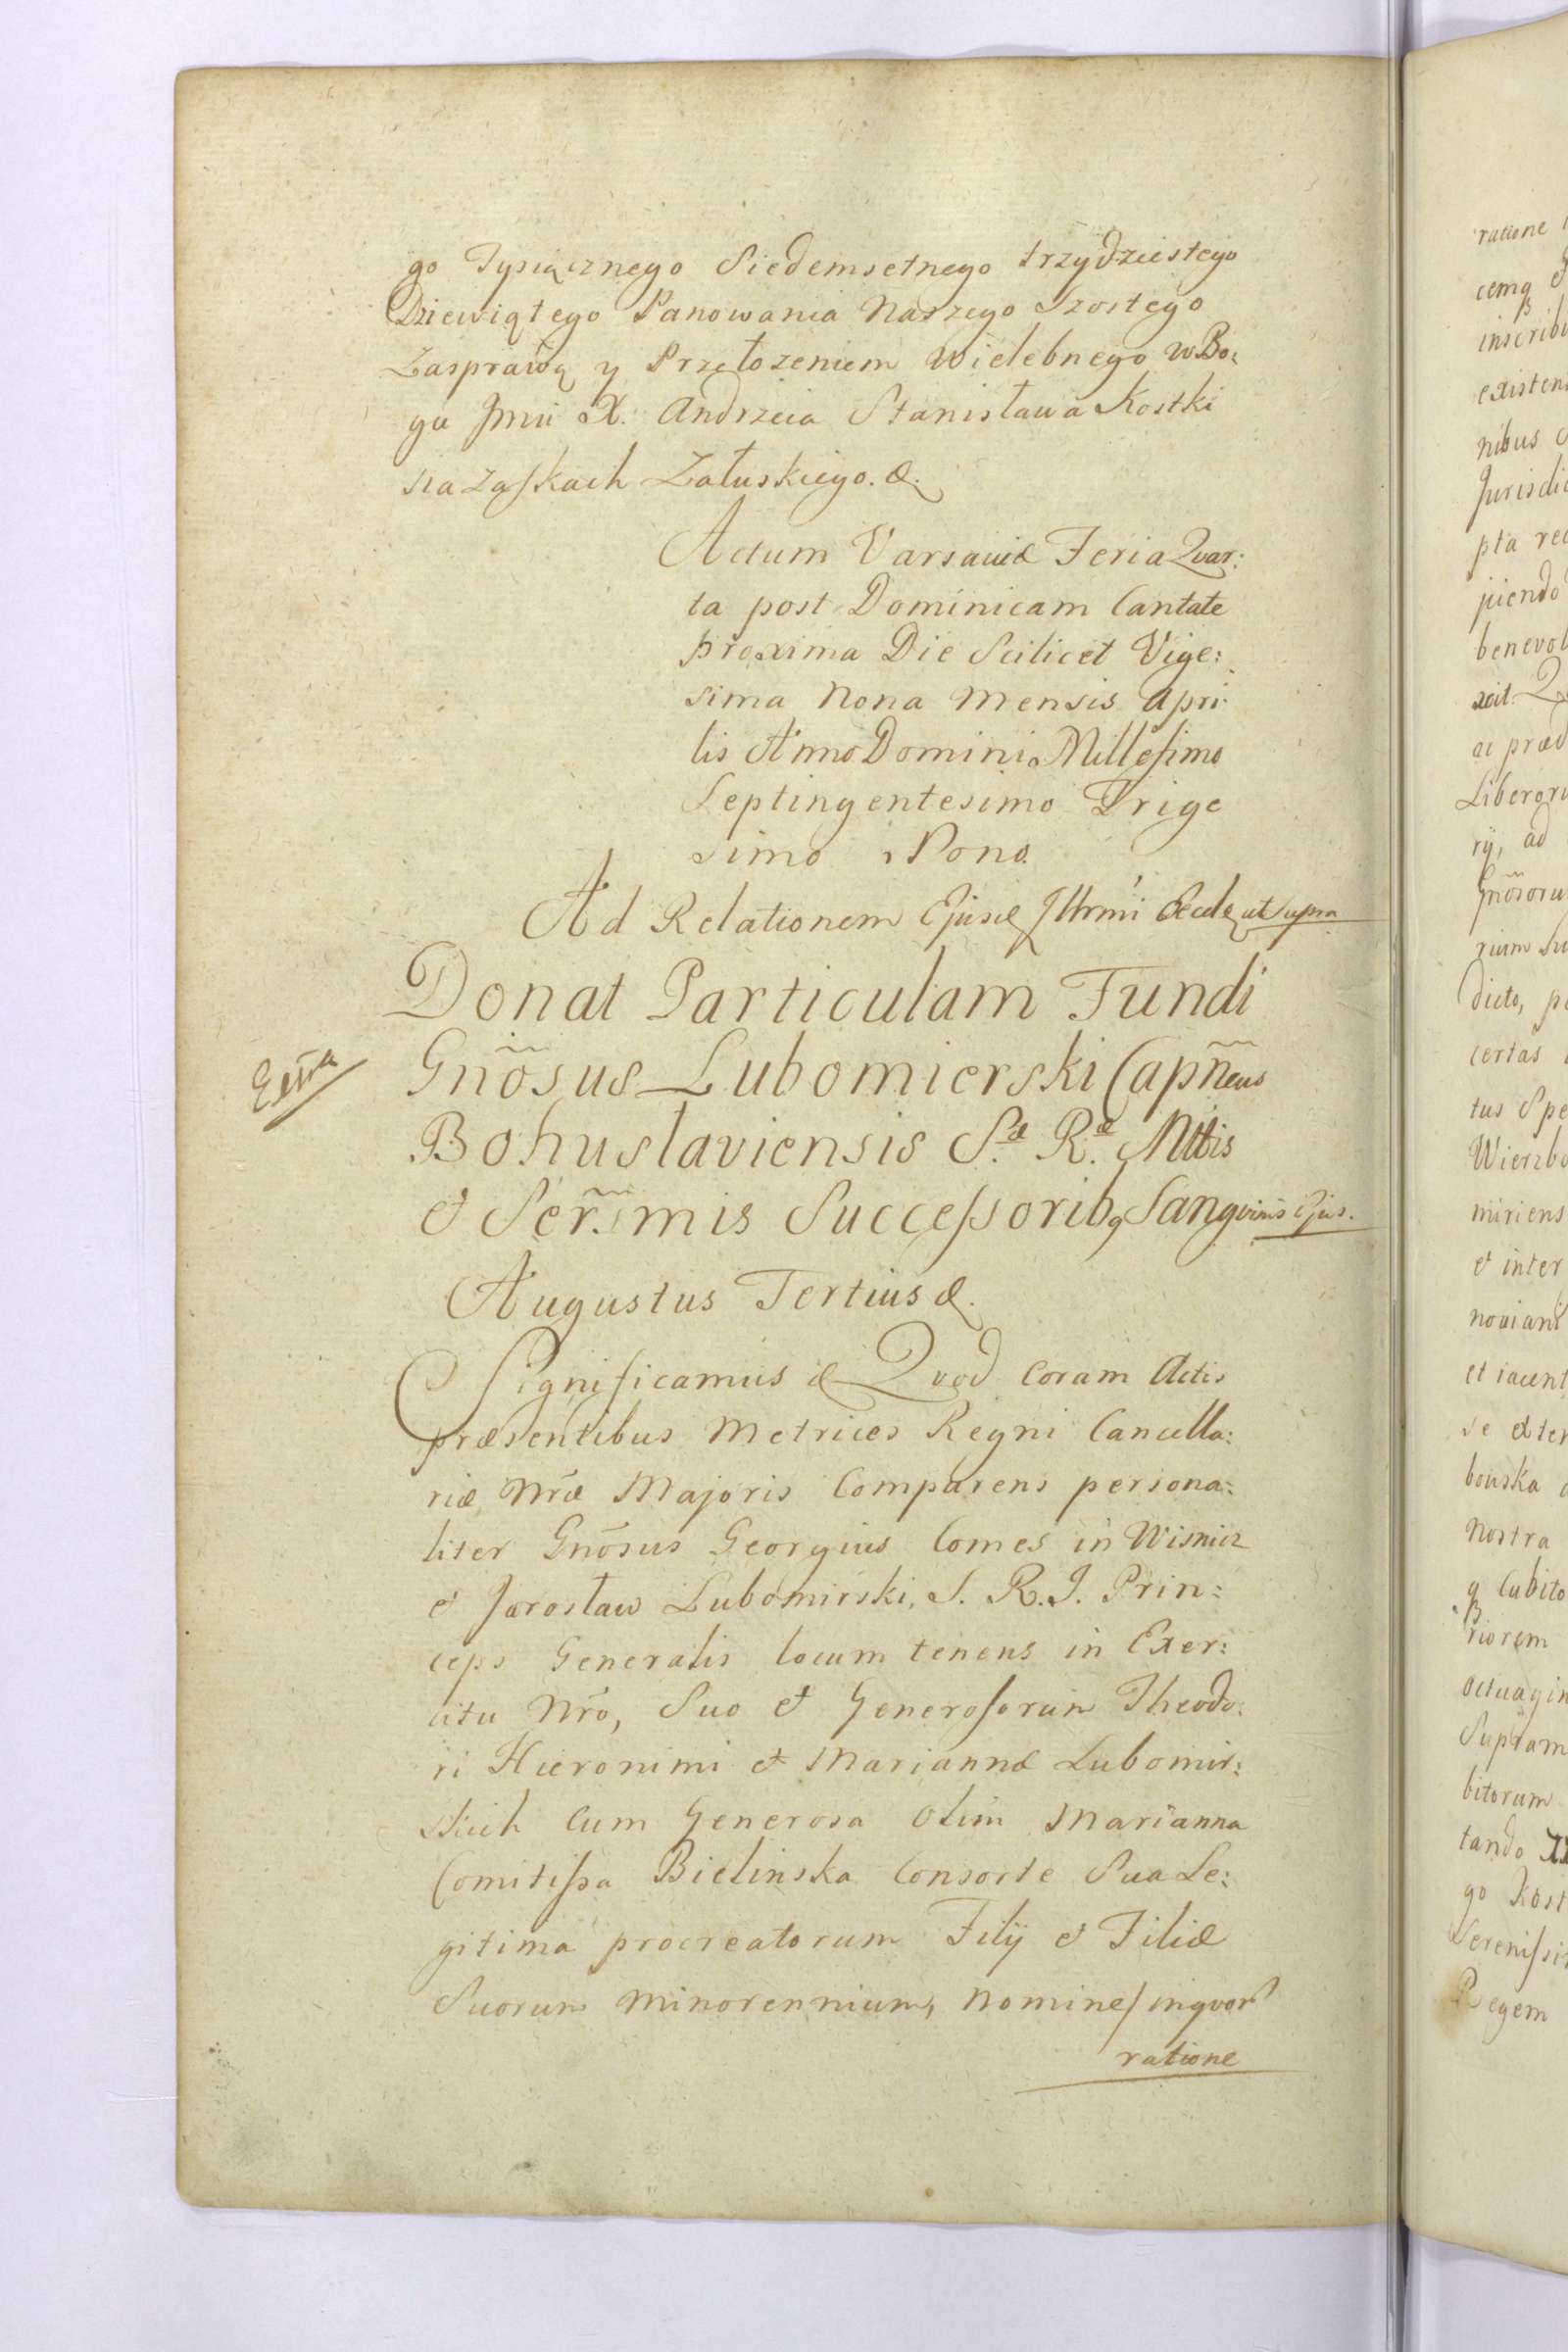 go Tysiącznego Siedemsetnego trzydziestego
Dziewiątego Panowania Naszego Szostego
Zasprawą y Przełozeniem Wielebnego w Bo:
gu Jmu X. Andrzeia Stanisława Kostki
Załuskiego. &.
Actum Varsaviæ Feria Quar:
ta post Dominicam Cantate
proxima Die Scilicet Vige:
sima Nona Mensis Apri
lis Anno Domini Millesimo
Septingentesimo Trige
simo Nono
Ad Relationem Ejusd Illrmi ut supra
Donat Particulam Fundi
Gnõsus Lubomierski Capñeus
Bohuslaviensis S.æ R.æ Mttis
et Serm̃is Successoribq Sangvinis Ejus.
Augustus Tertius &.
Significamus & Quod Coram Actis
præsentibus Metrices Regni Cancella:
riæ Nr̃æ Majoris Comparens persona:
liter Gnõsus Georgius Comes in Wisnicz
et Jarosław Lubomirski, S. R. I. Prin:
ceps Generalis locum tenens in Exer:
citu Nr̃o, Suo et Generosorum Theodo:
ri Hieronimi et Mariannæ Lubomir:
skich Cum Generosa Olim Marianna
Comitissa Bielinska Consorte Sua Le:
gitima procreatorum Filij et Filiæ
Suorum Minorennium, Nomine inqvor
ratione
ratione
cemq
existen
nibus
pta
benevol
ac præd
rij, ad
dicto,
certas
tus Spe
Wierzbo
miriens
et inter
et iacent
Nostra
q Cubito
riorem
octuagin
bitorum
tando
go
Serenissi
Regem